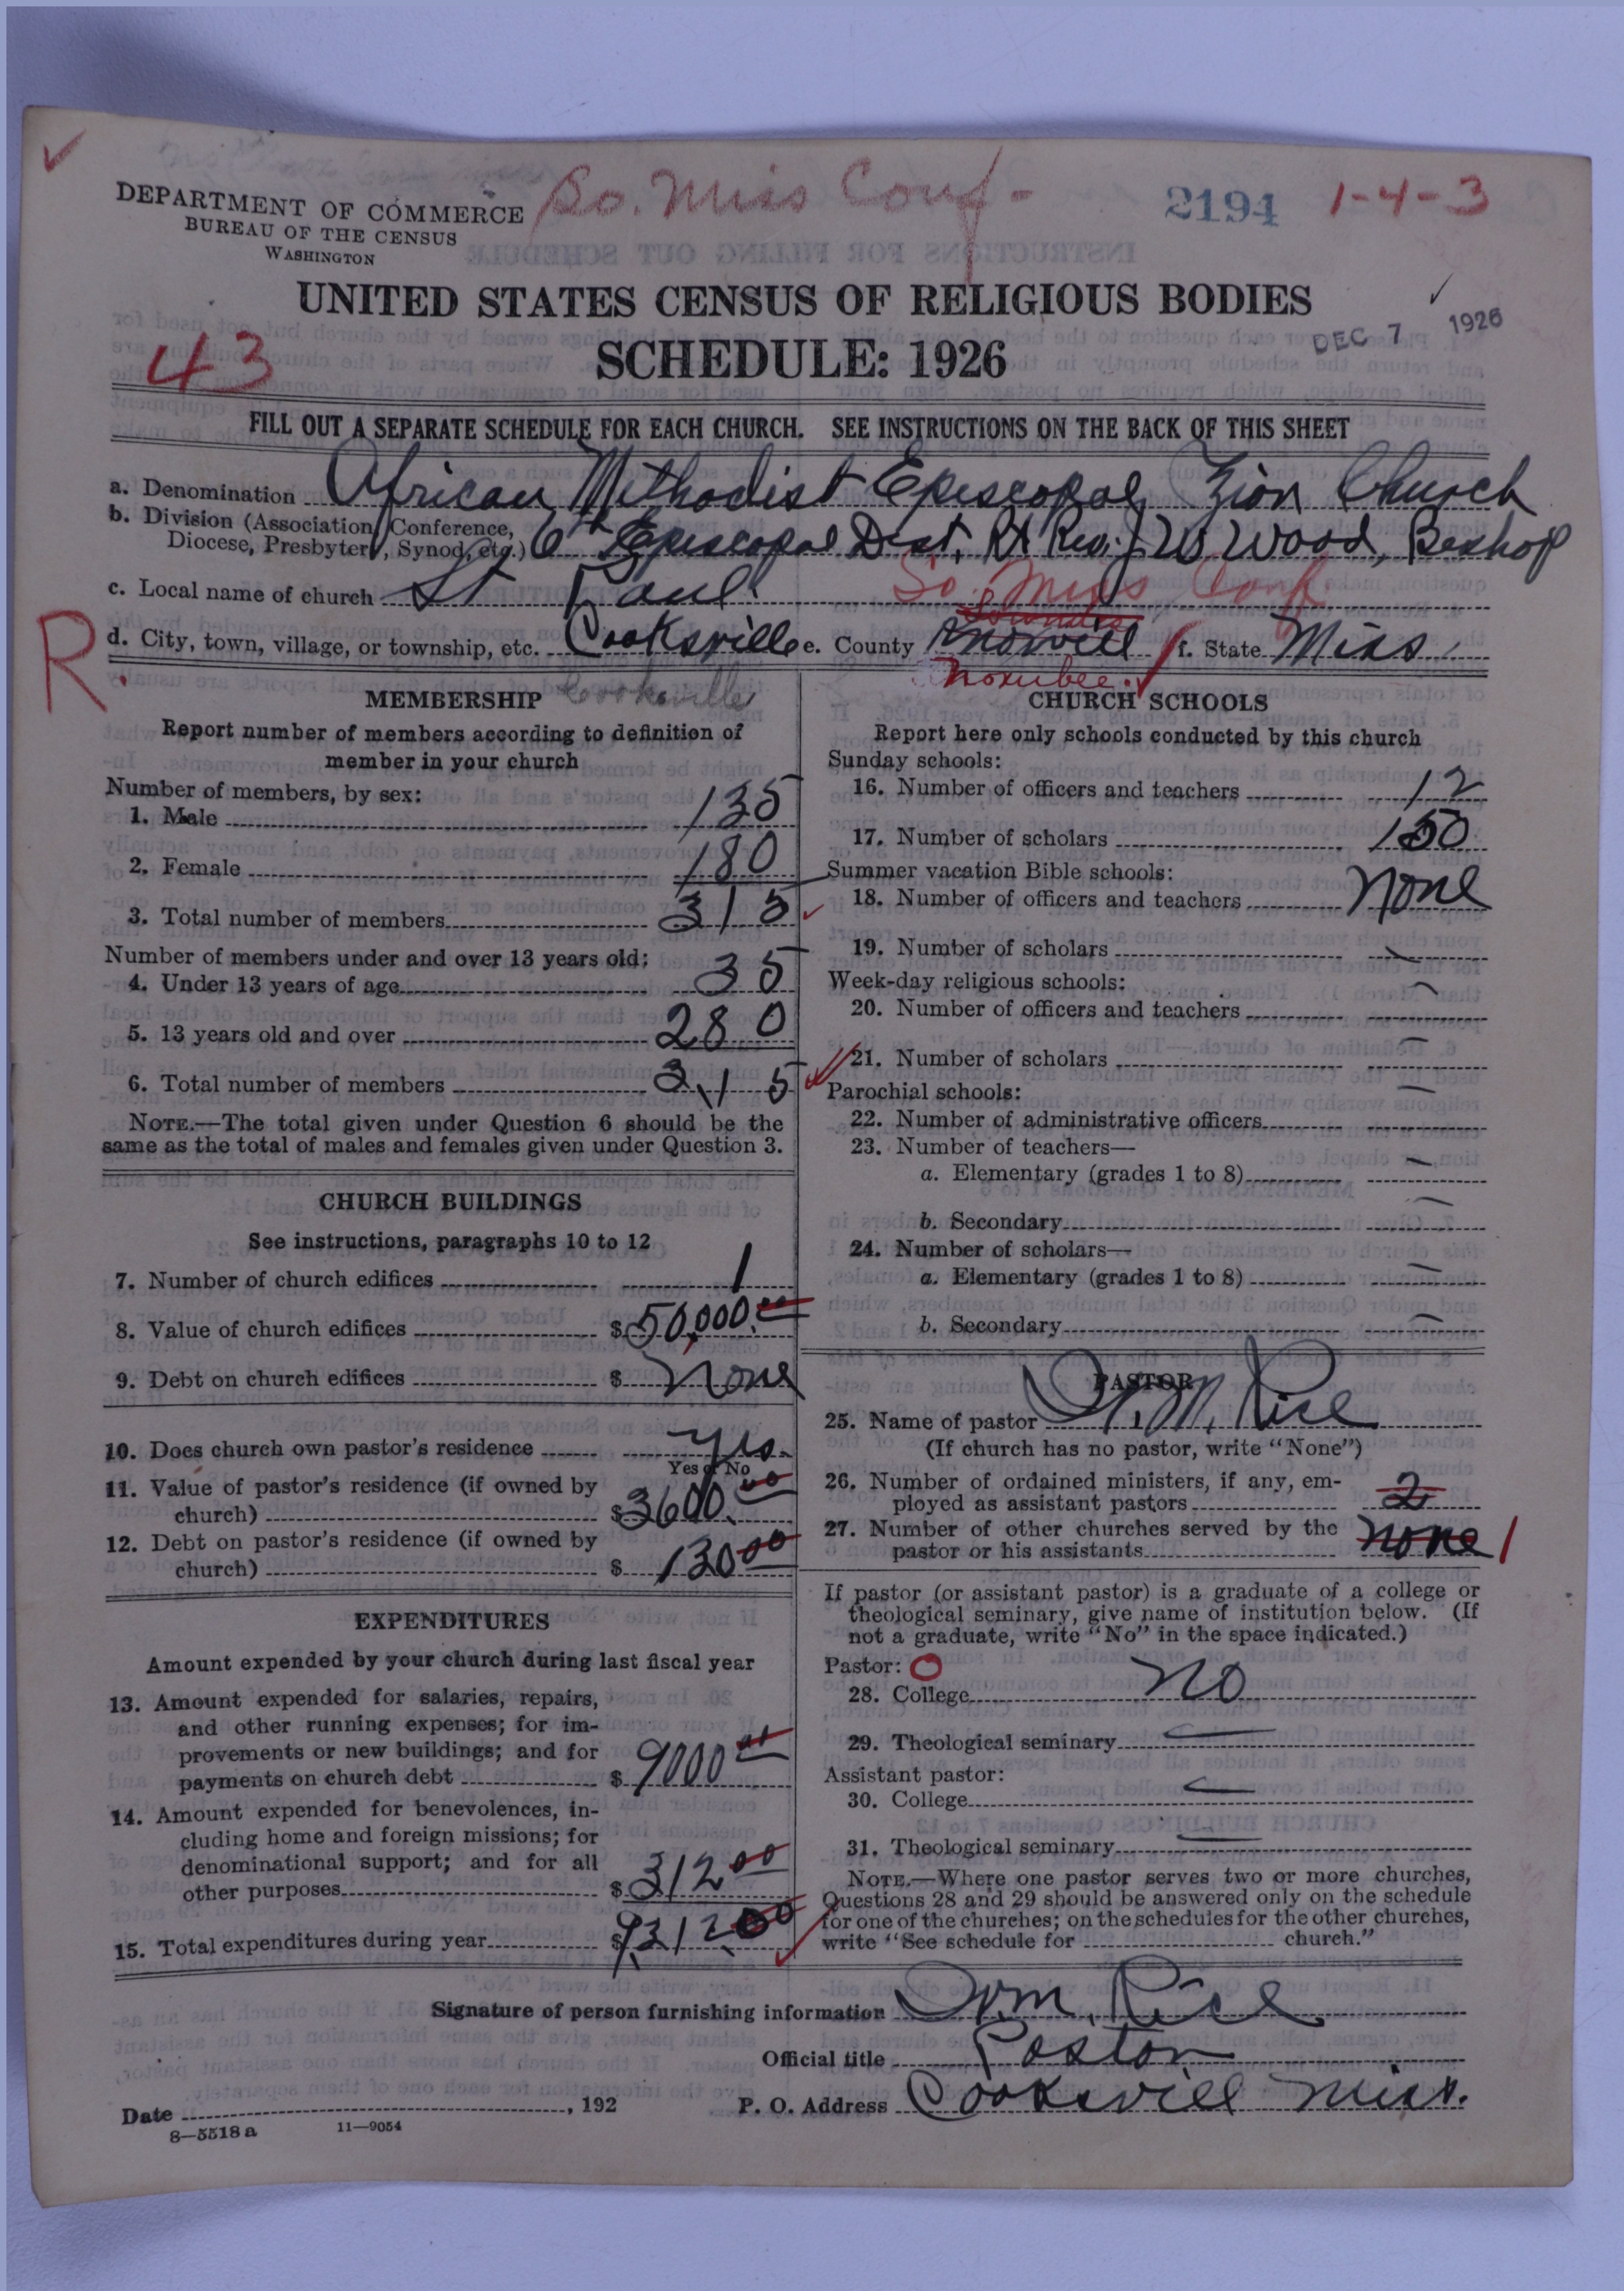 So. Miss Conf-
2194 1-4-3
DEPARTMENT OF COMMERCE
BUREAU OF THE CENSUS
WASHINGTON
UNITED STATES CENSUS OF RELIGIOUS BODIES
DEC 7 1926
43
SCHEDULE: 1926
FILL OUT A SEPARATE SCHEDULE FOR EACH CHURCH. SEE INSTRUCTIONS ON THE BACK OF THIS SHEET
a. Denomination African Methodist Episcopal Zion Church
b. Division (Association, Conference, Diocese, Presbytery, Synod, etc.) 6th Episcopal Dist. Rt Rev. J W Wood, Bishop
c. Local name of church St Paul So. Miss Conf.
R.
d. City, town, village, or township, etc. Cooksville e. County Lowndes Noxubee. f. State Miss
MEMBERSHIP Cooksville
Report number of members according to definition of
member in your church
Number of members, by sex:
1. Male 135
2. Female 180
3. Total number of members 315
Number of members under and over 13 years old:
4. Under 13 years of age 35
5. 13 years old and over 280
6. Total number of members 315
NOTE.—The total given under Question 6 should be the
same as the total of males and females given under Question 3.
CHURCH BUILDINGS
See instructions, paragraphs 10 to 12
7. Number of church edifices 1
8. Value of church edifices $50,000.00
9. Debt on church edifices $ None
10. Does church own pastor's residence yes.
Yes or No
11. Value of pastor's residence (if owned by
church) $3600.00
12. Debt on pastor's residence (if owned by
church) $ 130 00
EXPENDITURES
Amount expended by your church during last fiscal year
13. Amount expended for salaries, repairs,
and other running expenses; for im-
provements or new buildings; and for
payments on church debt $ 9000 00
14. Amount expended for benevolences, in-
cluding home and foreign missions; for
denominational support; and for all
other purposes $ 312 00
15. Total expenditures during year $9312.00
CHURCH SCHOOLS
Report here only schools conducted by this church
Sunday schools:
16. Number of officers and teachers 12
17. Number of scholars 150
Summer vacation Bible schools:
18. Number of officers and teachers None
19. Number of scholars —
Week-day religious schools:
20. Number of officers and teachers —
21. Number of scholars —
Parochial schools:
22. Number of administrative officers —
23. Number of teachers—
a. Elementary (grades 1 to 8) —
b. Secondary —
24. Number of scholars—
a. Elementary (grades 1 to 8) —
b. Secondary —
PASTOR
25. Name of pastor W. M. Rice
(If church has no pastor, write "None")
26. Number of ordained ministers, if any, em-
ployed as assistant pastors 2
27. Number of other churches served by the
pastor or his assistants none 1
If pastor (or assistant pastor) is a graduate of a college or
theological seminary, give name of institution below. (If
not a graduate, write "No" in the space indicated.)
Pastor: O
28. College No
29. Theological seminary —
Assistant pastor:
30. College —
31. Theological seminary —
NOTE.—Where one pastor serves two or more churches,
Questions 28 and 29 should be answered only on the schedule
for one of the churches; on the schedules for the other churches,
write "See schedule for church."
Signature of person furnishing information W.M. Rice
Official title Pastor
Date , 192 P. O. Address Cooksvill Miss.
8—5518 a 11—9054